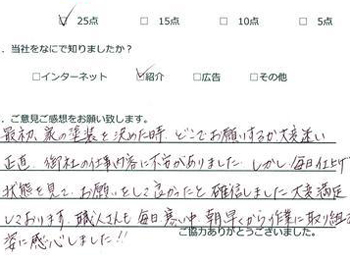 ✓25点 □ 15点 □ 10点 □ 5点
．当社をなにで知りましたか？
□インターネット ✓紹介 □広告 □その他
．ご意見ご感想をお願い致します。
最初、家の塗装を決めた時、どこでお願いするか大変迷い
正直、御社の仕事内容に不安がありました。しかし毎日仕上げ
状態を見て、お願いをして良かったと確信しました。大変満足
しております。職人さんも毎日寒い中、朝早くから作業に取り組む
姿に感心しました!!
ご協力ありがとうございました。